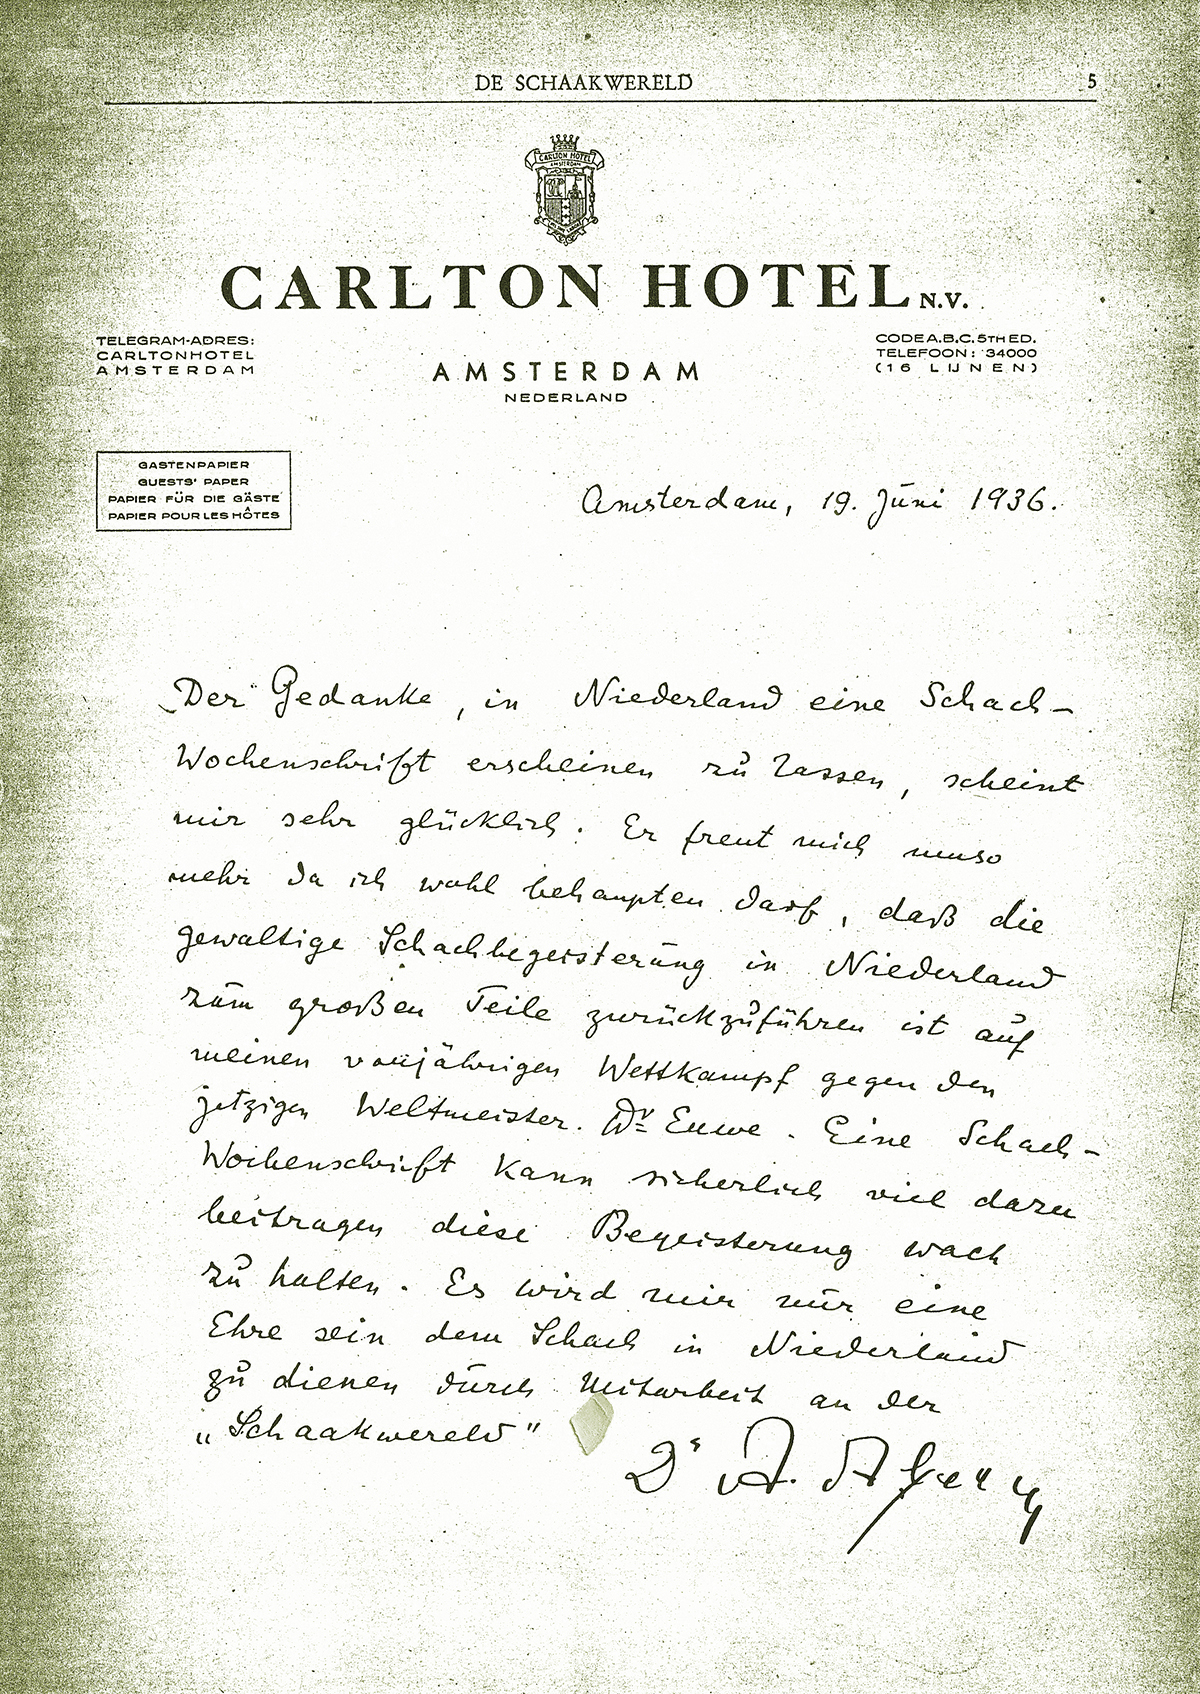 DE SCHAAKWERELD 5
CARLTON HOTEL
AMSTERDAM
CARLTON HOTEL N.V.
TELEGRAM-ADRES:
CARLTONHOTEL
AMSTERDAM
AMSTERDAM
NEDERLAND
CODE A.B.C. 5TH ED.
TELEFOON: 34000
(16 LIJNEN)
GASTENPAPIER
GUESTS' PAPER
PAPIER FÜR DIE GÄSTE
PAPIER POUR LES HÔTES
Amsterdam, 19. Juni 1936.
Der Gedanke, in Niederland eine Schach-
Wochenschrift erscheinen zu lassen, scheint
mir sehr glücklich. Er freut mich umso
mehr da ich wohl behaupten darf, daß die
gewaltige Schachbegeisterung in Niederland
zum großen Teile zurückzuführen ist auf
meinen vorjährigen Wettkampf gegen den
jetzigen Weltmeister. Dr Euwe. Eine Schach-
Wochenschrift kann sicherlich viel dazu
beitragen diese Begeisterung wach
zu halten. Es wird mir nur eine
Ehre sein dem Schach in Niederland
zu dienen durch Mitarbeit an der
„Schaakwereld"
Dr A.